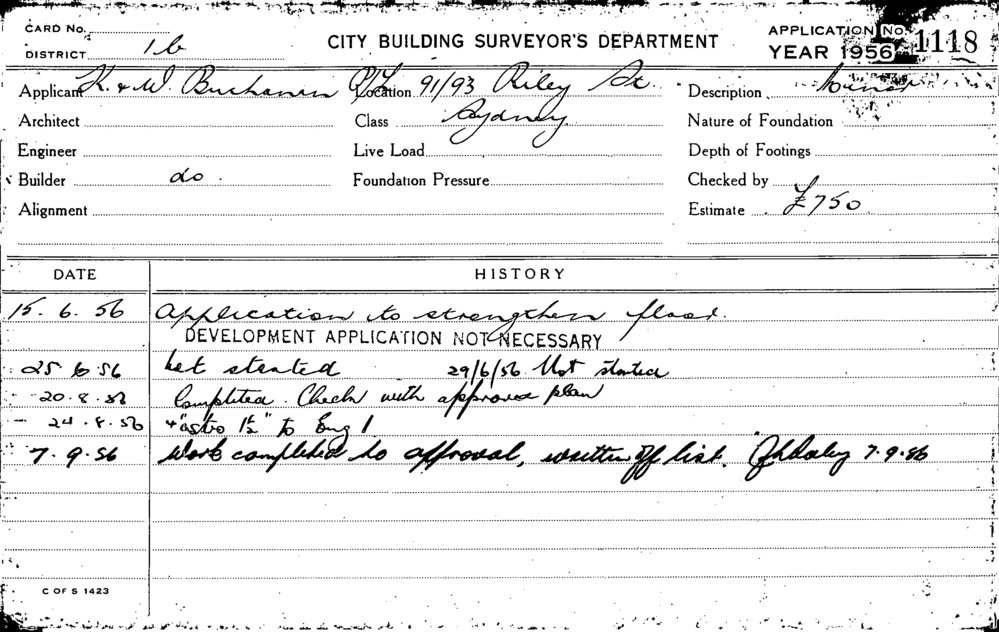 CARD No.
DISTRICT 1b
CITY BUILDING SURVEYOR'S DEPARTMENT
APPLICATION No. 1118
YEAR 1956
Applicant K & W. Buchanan P/L
Location 91/93 Riley St.
Description Minor
Architect
Class Sydney
Nature of Foundation
Engineer
Live Load
Depth of Footings
Builder do.
Foundation Pressure
Checked by
Alignment
Estimate £750
DATE HISTORY
15.6.56 Application to strengthen floor.
DEVELOPMENT APPLICATION NOT NECESSARY
25 6 56 Not started 29/6/56 Not started
20.8.56 Completed. Check with approved plan
24.8.56 to Eng 1
7.9.56 Work completed to approval, written off list. 7.9.56
C OF S 1423